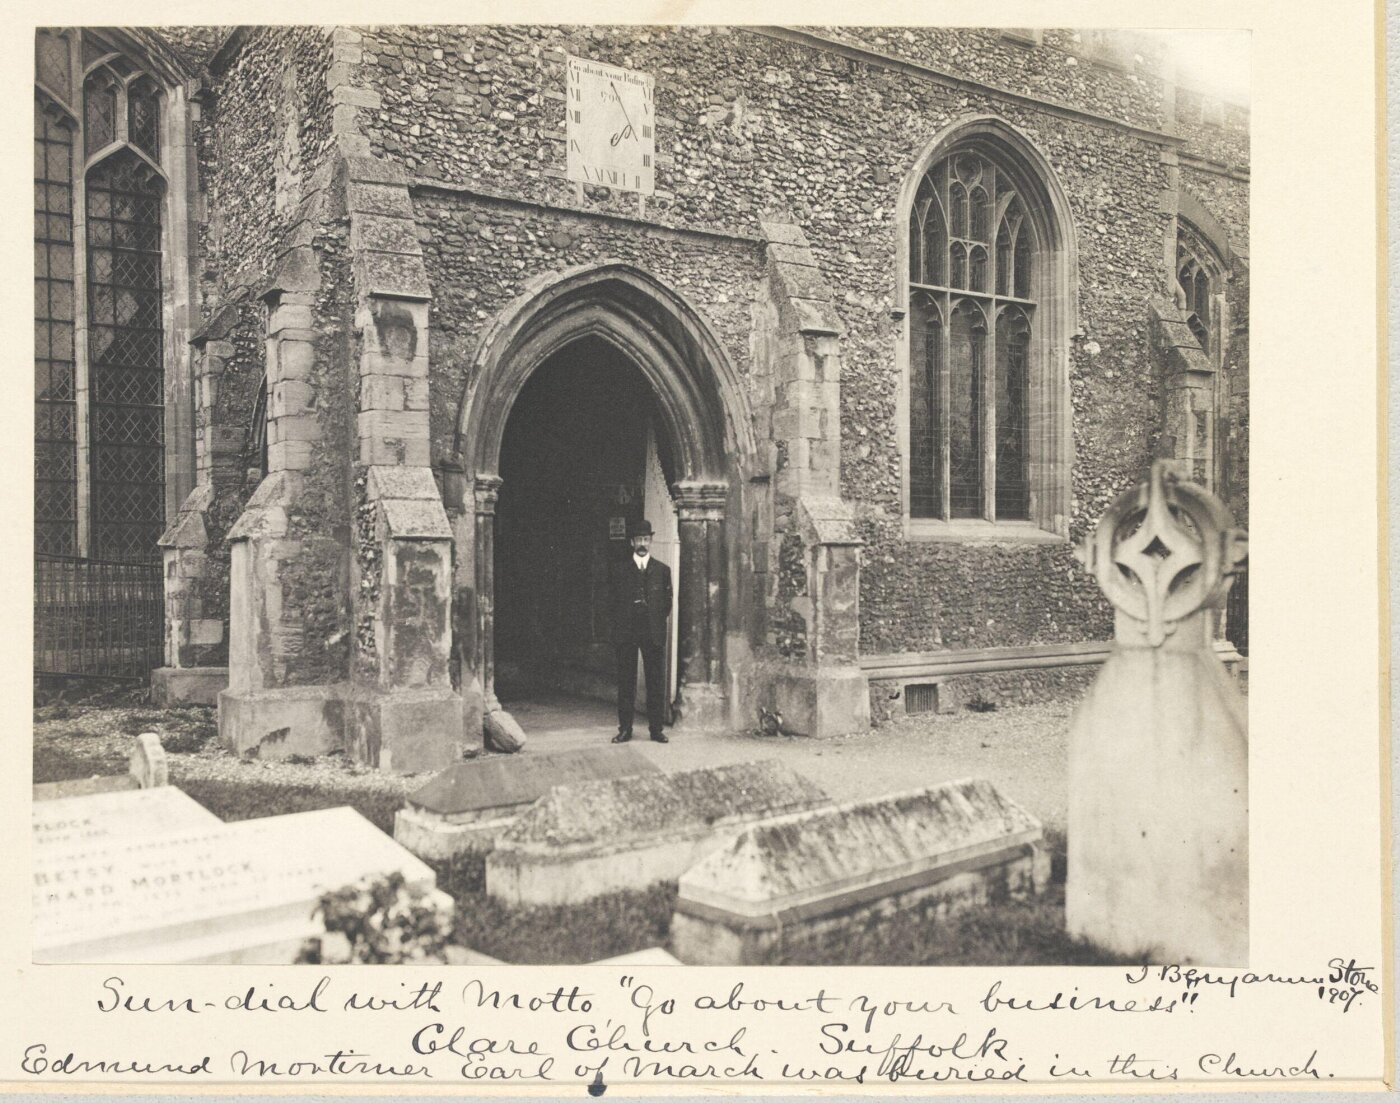 Go about your Busines
VI
VII
VIII
IX
X
XI
XII
I
II
III
IIII
V
VI
BETSY
RICHARD MORTLOCK
J. Benjamin Stone
1907.
Sun-dial with Motto "Go about your business"
Clare Church. Suffolk
Edmund Mortimer Earl of March was buried in this Church.